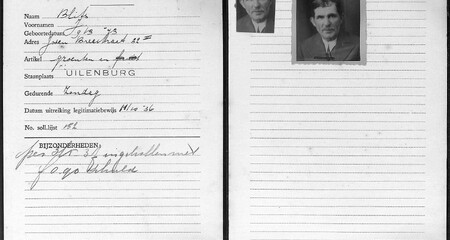 Naam Blitz
Voornamen
Geboortedatum 19/3 '73
Adres Joden Breestraat 22 II
Artikel groenten en fruit
Standplaats UILENBURG
Gedurende Zondag
Datum uitreiking legitimatiebewijs 14/10 '36
No. soll.lijst 152
BIJZONDERHEDEN:
ingehouden met
schuld